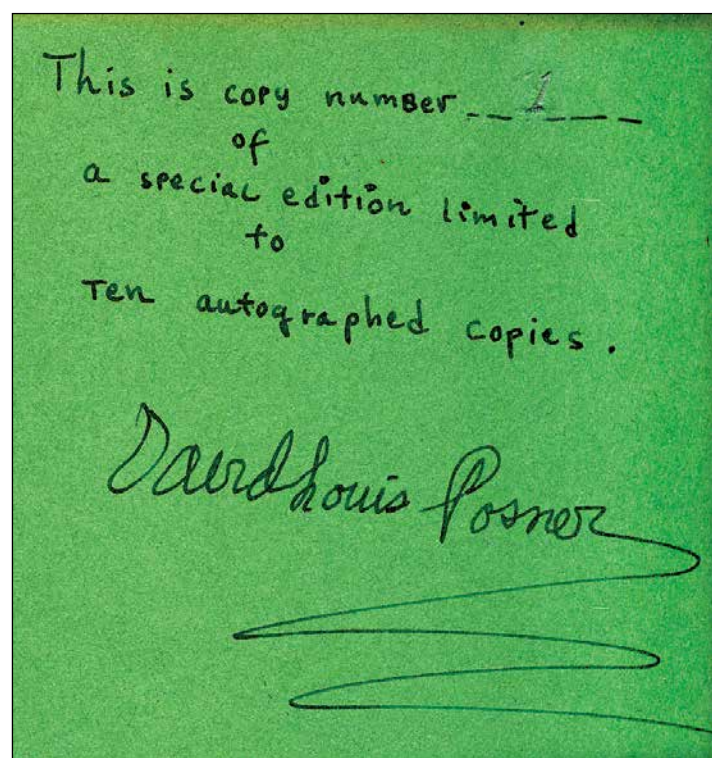 This is copy number __1____
of
a special edition limited
to
Ten autographed copies.
David Louis Posner